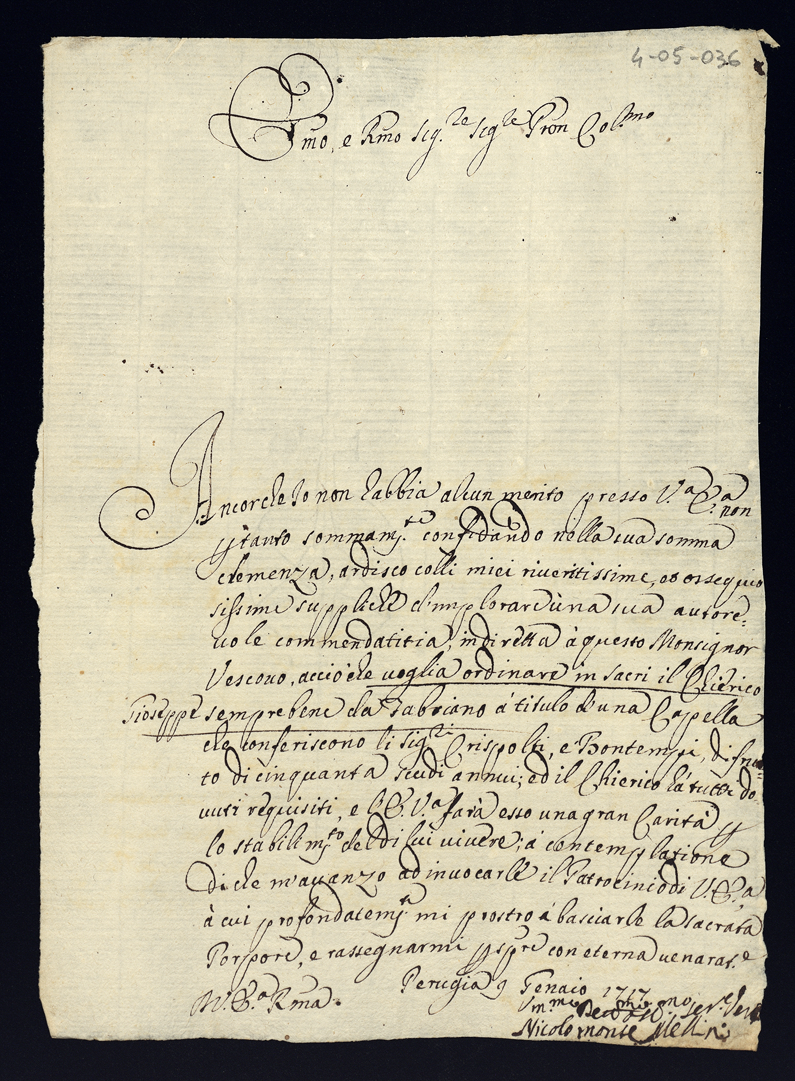 4-05-036
Emo, e Rmo Sig.re Sig.re Pron Col.mo
Ancorche Io non habbia alcun merito presso V.a E.a non
ptanto sommam.te confidando nella sua somma
clemenza, ardisco colli miei riveritissime, ed ossequio
sissime suppliche d'implorare una sua autore=
vole commendatitia, indiretta à questo Monsignor
Vescovo, acciò che voglia ordinare in sacri il Chierico
Gioseppe semprebene da Fabriano à titulo d'una Cappella
che conferiscono li Sig.ri Crispolti, e Bontempi, di frut=
to di cinquanta scudi annui; ed il Chierico hà tutti do
vuti requisiti, e l'E.V.a farà esso una gran Carità p
lo stabilim.to del di lui vivere; à contemplatione
di che m'avanzo ad invocarle il Patrocinio di V.E.a
à cui profondatem.te mi prostro à basciarle la sacrata
Porpore, e rassegnarmi p spre con eterna venerat.e
Di V.E.a Rma. Perugia 9 Genaio 1717
V.mo Dev.mo ser.e
Nicolo monte Mellini